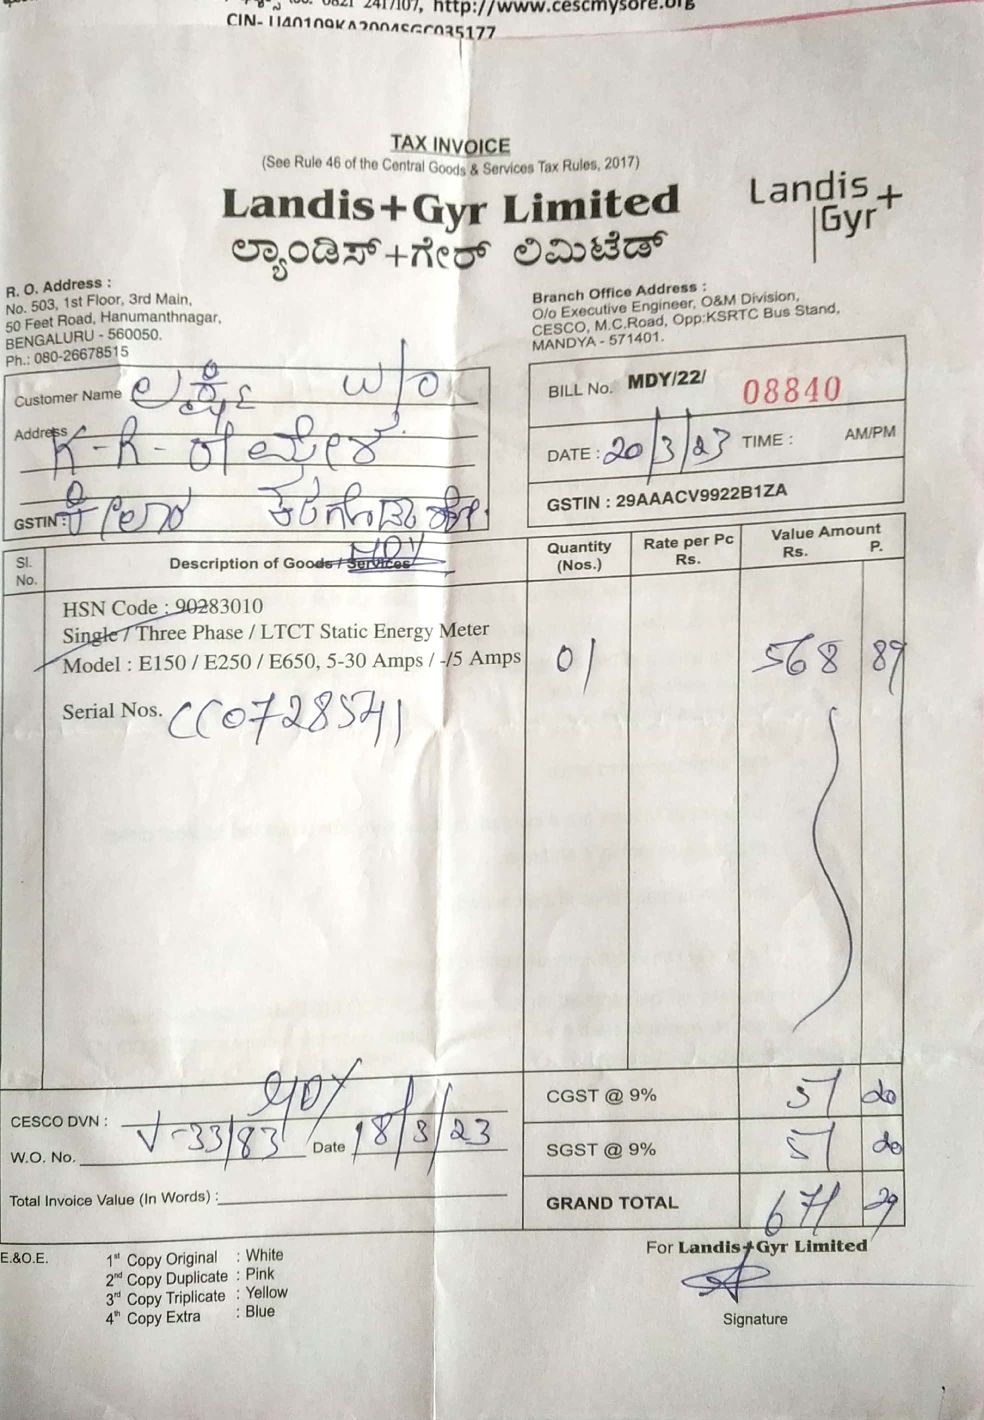 2417107, http://www.cescmysore.org
CIN- U40109KA2004SGC035177
TAX INVOICE
(See Rule 46 of the Central Goods & Services Tax Rules, 2017)
Landis+Gyr Limited
ಲ್ಯಾಂಡಿಸ್+ಗೇರ್ ಲಿಮಿಟೆಡ್
Landis+
Gyr
R. O. Address :
No. 503, 1st Floor, 3rd Main,
50 Feet Road, Hanumanthnagar,
BENGALURU - 560050.
Ph.: 080-26678515
Branch Office Address :
O/o Executive Engineer, O&M Division,
CESCO, M.C.Road, Opp:KSRTC Bus Stand,
MANDYA - 571401.
Customer Name W/O
Address K-R-
GSTIN :
MDY
BILL No. MDY/22/ 08840
DATE : 20/3/23 TIME : AM/PM
GSTIN : 29AAACV9922B1ZA
Sl. No. Description of Goods / Services Quantity (Nos.) Rate per Pc Rs. Value Amount Rs. P.
HSN Code : 90283010
Single / Three Phase / LTCT Static Energy Meter
Model : E150 / E250 / E650, 5-30 Amps / -/5 Amps 01 568 89
Serial Nos. CC0728541
CESCO DVN : MDY
W.O. No. V-33/83 Date 18/3/23
Total Invoice Value (In Words) :
CGST @ 9% 51 20
SGST @ 9% 51 20
GRAND TOTAL 671 29
E.&O.E.
1st Copy Original : White
2nd Copy Duplicate : Pink
3rd Copy Triplicate : Yellow
4th Copy Extra : Blue
For Landis+Gyr Limited
Signature